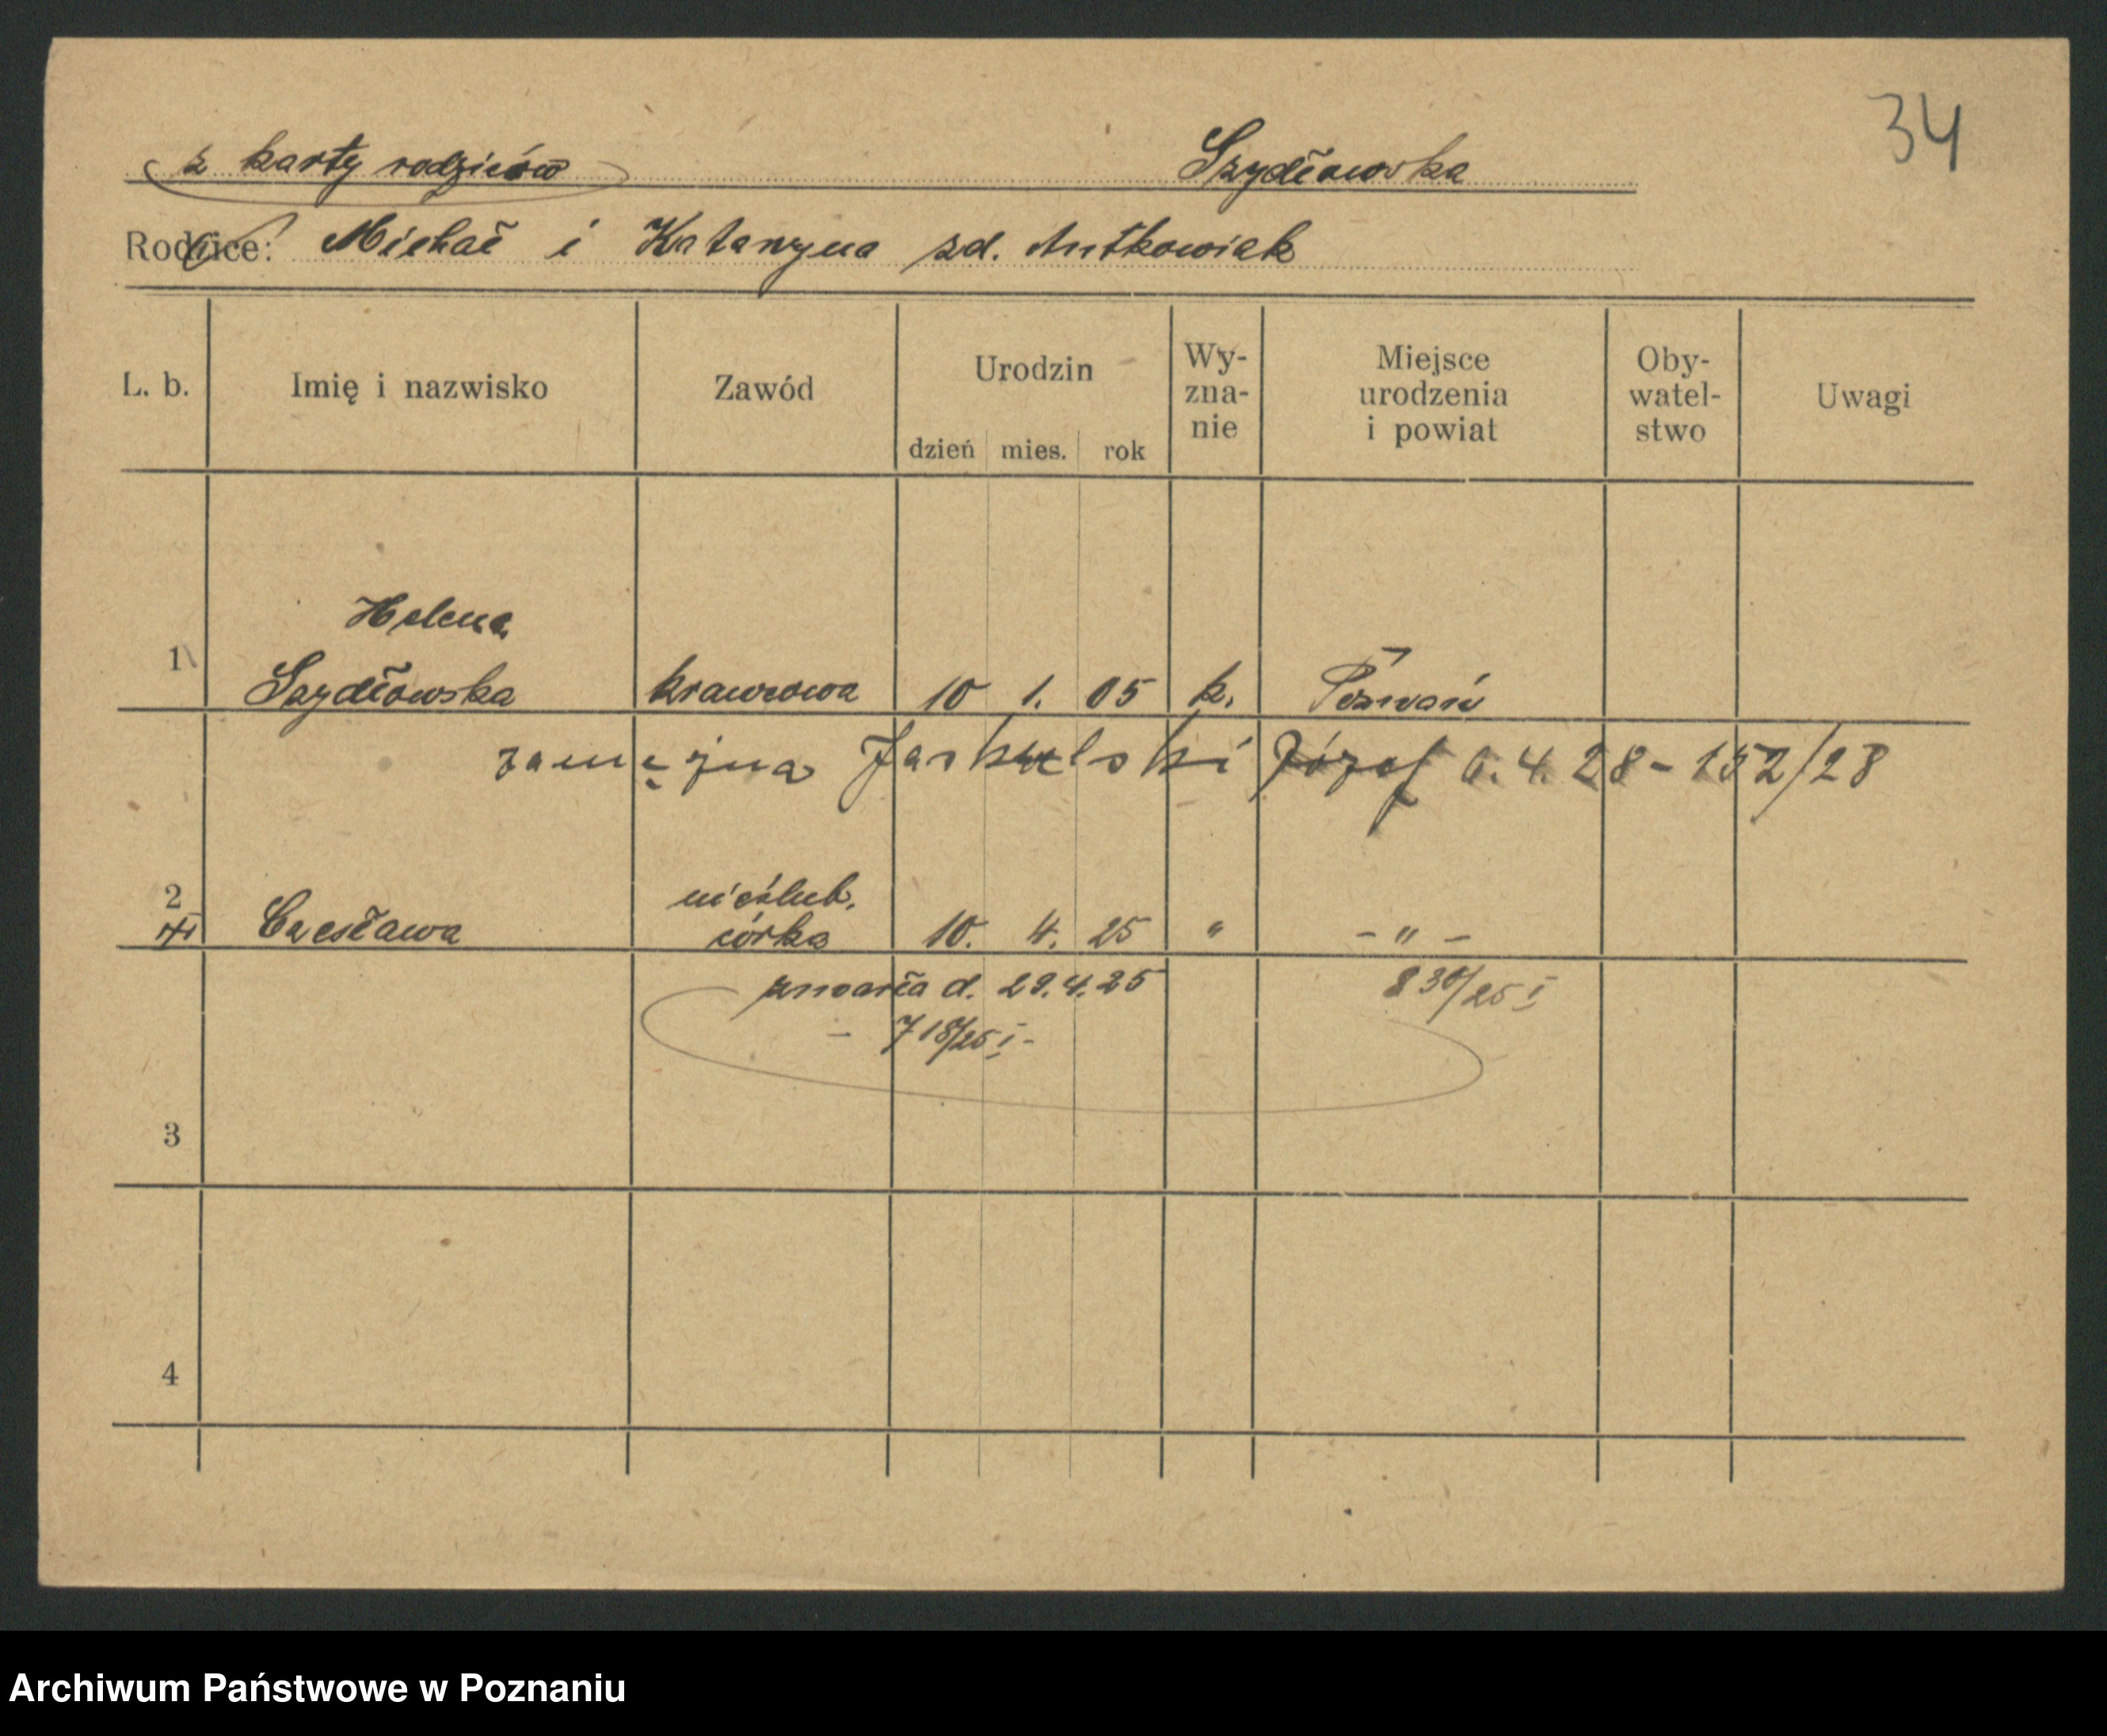 34
z karty rodziców Szydłowska
Rodzice: Michał i Katarzyna zd. Antkowiak
L. b. Imię i nazwisko Zawód Urodzin dzień mies. rok Wy-zna-nie Miejsce urodzenia i powiat Oby-watel-stwo Uwagi
Helena
1 Szydłowska krawcowa 10 1. 05 k. Poznań
zamężna Józef 6.4.28 - 152/28
nieślub.
2 Czesława córka 10. 4. 25 " - " -
zmarła d. 29.4.25 830/25 I
- 718/25 I -
3
4
Archiwum Państwowe w Poznaniu